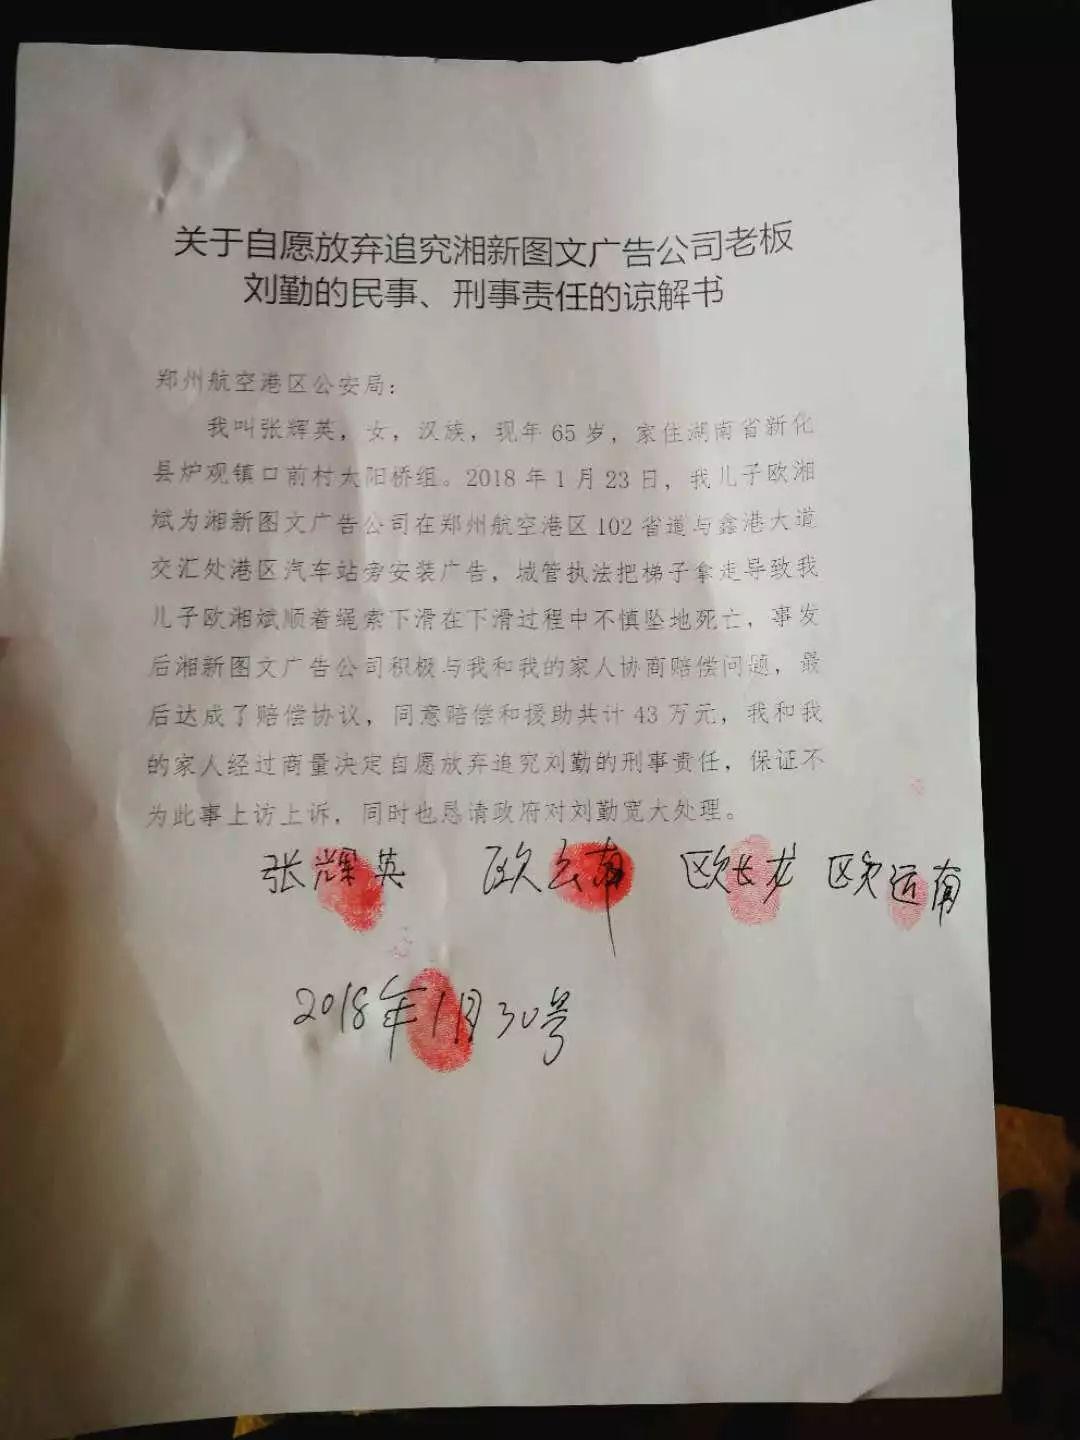 关于自愿放弃追究湘新图文广告公司老板
刘勤的民事、刑事责任的谅解书
郑州航空港区公安局：
我叫张辉英，女，汉族，现年 65 岁，家住湖南省新化
县炉观镇口前村太阳桥组。2018 年 1 月 23 日，我儿子欧湘
斌为湘新图文广告公司在郑州航空港区 102 省道与鑫港大道
交汇处港区汽车站旁安装广告，城管执法把梯子拿走导致我
儿子欧湘斌顺着绳索下滑在下滑过程中不慎坠地死亡，事发
后湘新图文广告公司积极与我和我的家人协商赔偿问题，最
后达成了赔偿协议，同意赔偿和援助共计 43 万元，我和我
的家人经过商量决定自愿放弃追究刘勤的刑事责任，保证不
为此事上访上诉，同时也恳请政府对刘勤宽大处理。
张辉英 欧云南 欧长龙 欧远南
2018年1月30号